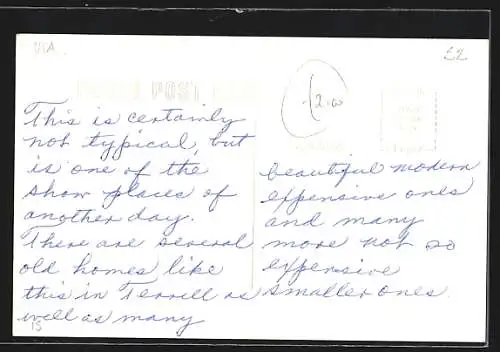 USA
52
POST
2.00
This is certainly
not typical, but
is one of the
show places of
another day.
There are several
old homes like
this in Terrell as
well as many
15
beautiful modern
expensive ones
and many
more not so
expensive
smaller ones.